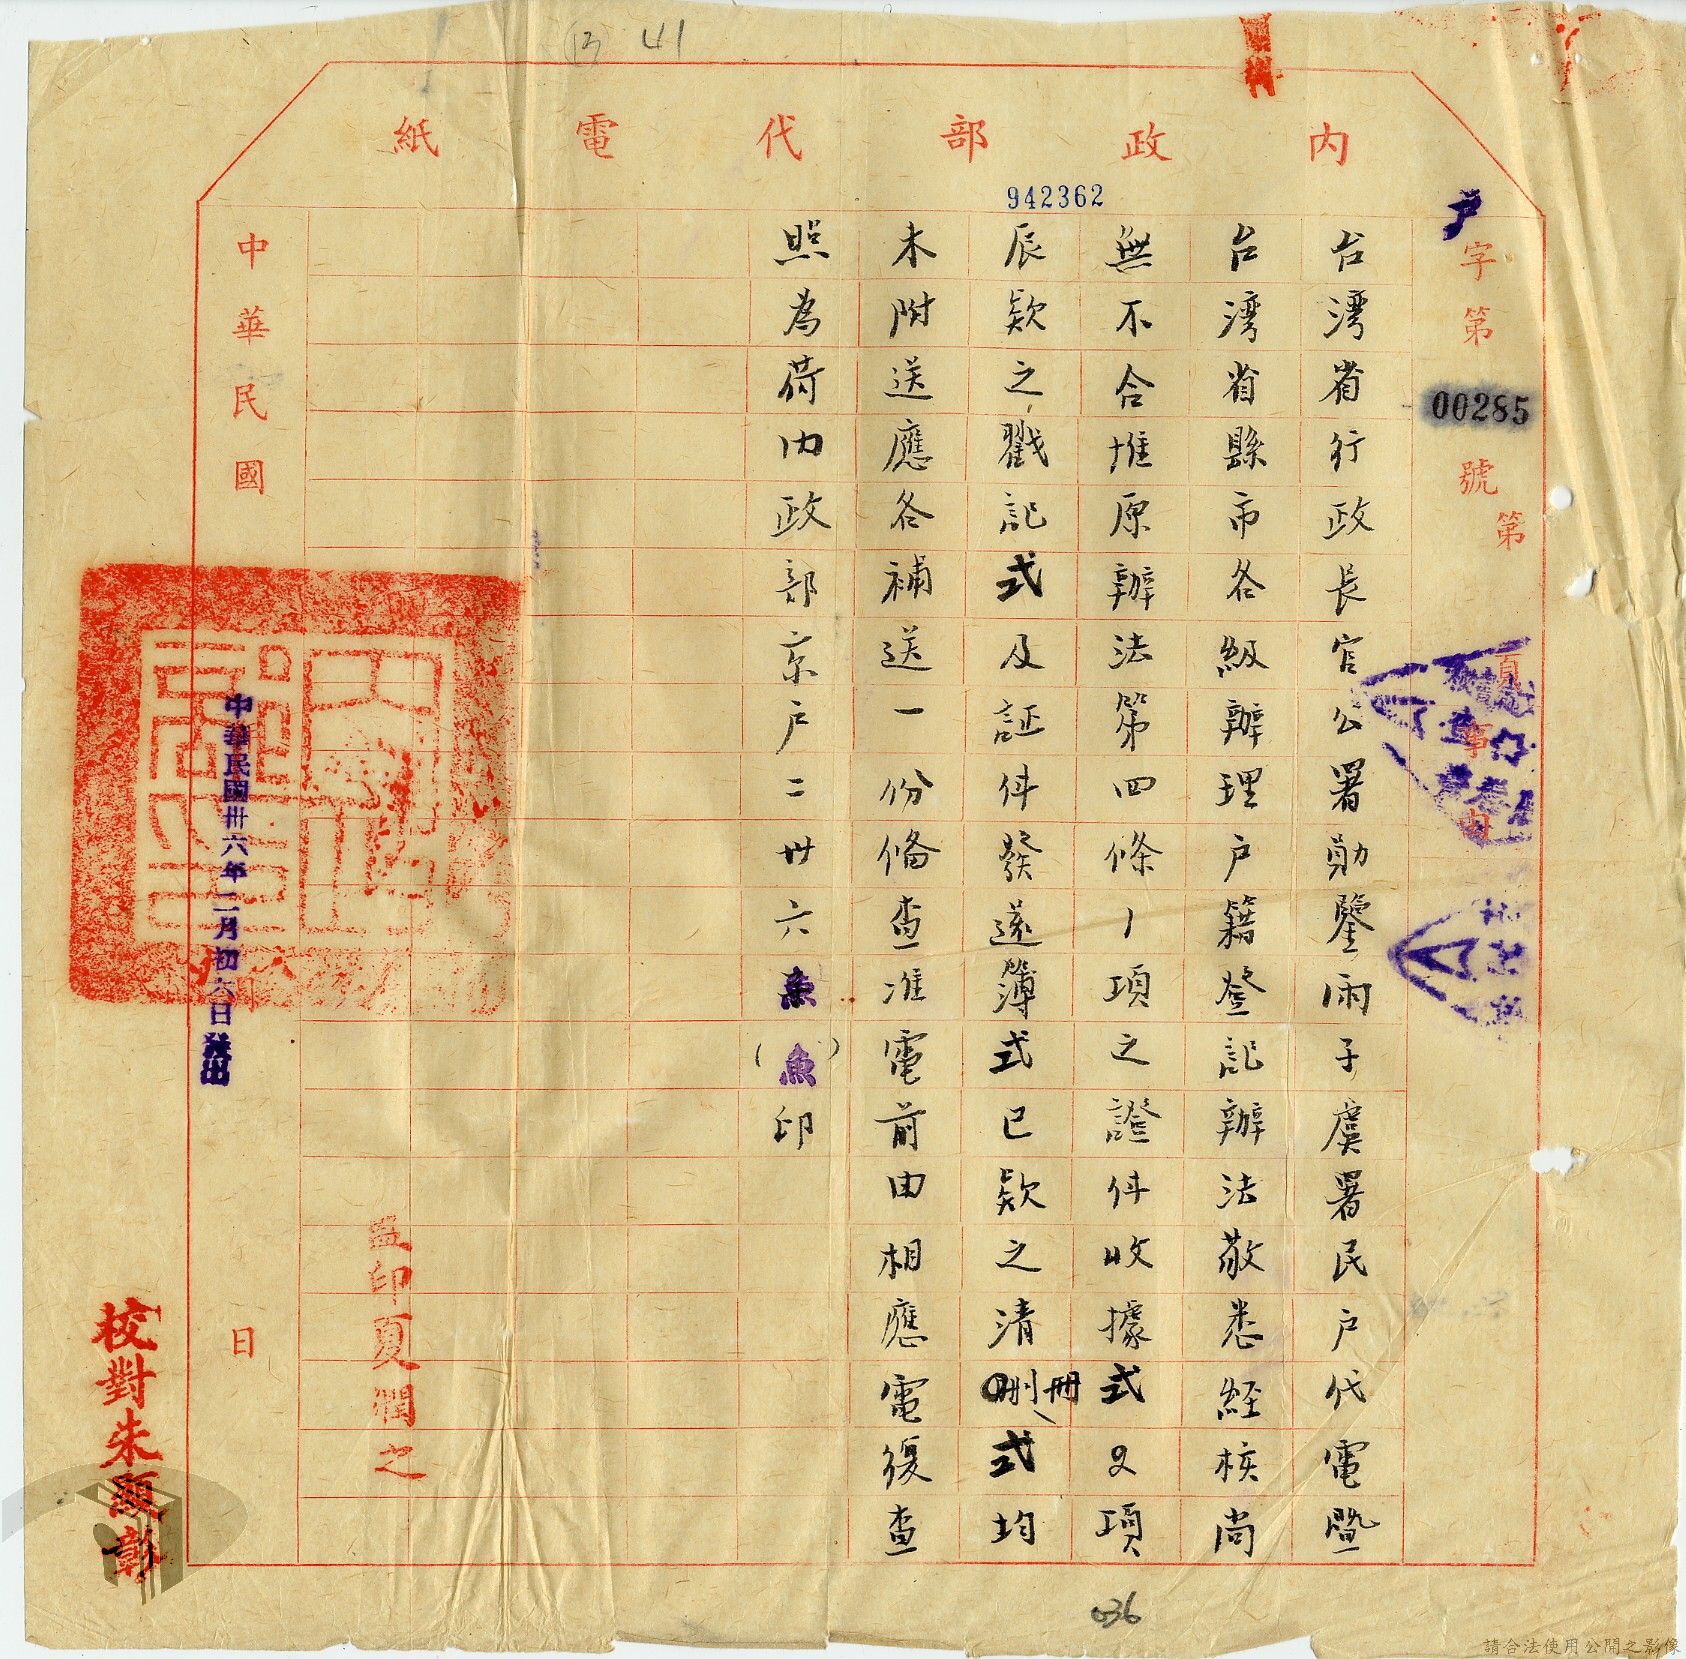 ㈫ 41
內政部代電紙
942362
戶字第00285號第 頁
台灣省行政長官公署勛鑒雨子虞署民戶代電暨
台灣省縣市各級辦理戶籍登記辦法敬悉経核尚
無不合惟原辦法第四條1項之證件收據式2項
辰欵之戳記式及証件發還簿式已欵之清冊式均
未附送應各補送一份俻查准電前由相應電復查
照為荷內政部京戶二卅六魚(魚)印
監印夏潤之
中華民國 日
中華民國卅六年二月初六日發出
校對朱顯彰
036
請合法使用公開之影像